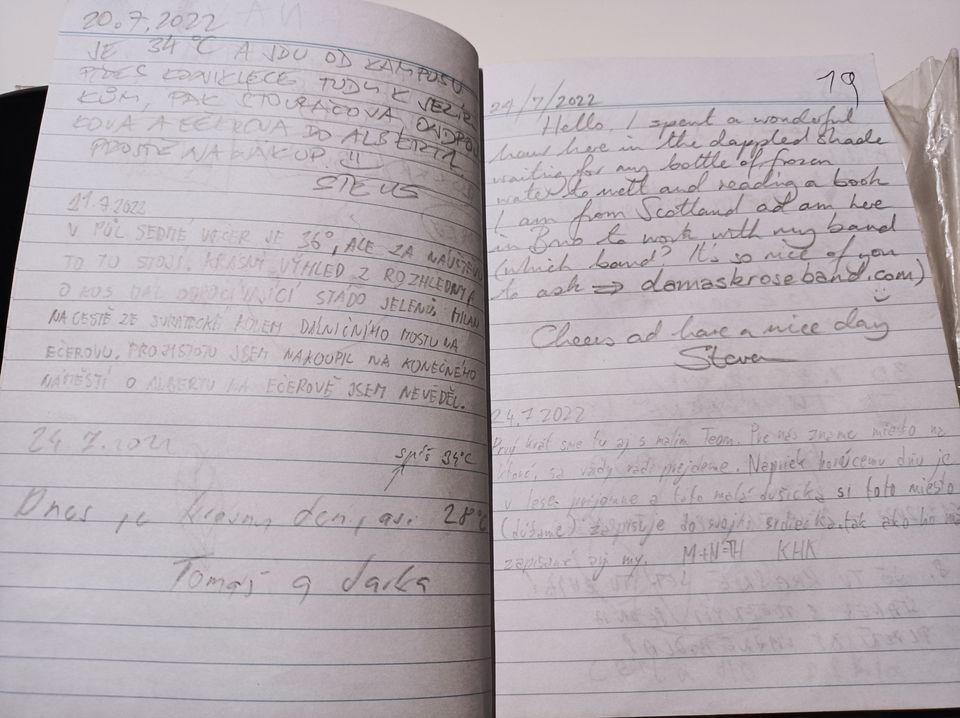 20.7.2022
JE 34°C A JDU OD KAMPUSU
PŘES KONIKLECE TUDY K JEZÍR
KŮM, PAK STOURAČOVA, ONDROU
KOVA A EČEROVA DO ALBERTA
PROSTĚ NA NÁKUP
21.7.2022
V PŮL SEDMÉ VEČER JE 36°, ALE ZA NÁVŠTĚVU
TO TU STOJÍ. KRÁSNÝ VÝHLED Z ROZHLEDNY A
O KUS DÁL ODPOČÍVAJÍCÍ STÁDO JELENŮ. MILAN
NA CESTĚ ZE KOLEM DÁLNIČNÍHO MOSTU NA
EČEROVU. PRO JISTOTU JSEM NAKOUPIL NA KONEČNÉHO
NÁMĚSTÍ O ALBERTU NA EČEROVĚ JSEM NEVĚDĚL.
24.7.2022
spíš 34°C
Dnes je krásný den, asi 28°C
Tomáš a
19
24/7/2022
Hello, I spent a wonderful
hour here in the dappled shade
waiting for my bottle of frozen
water to melt and reading a book
I am from Scotland ad am here
in Brno to work with my band
(which band? It's so nice of you
to ask ⇒ damaskroseband.com)
Cheers ad have a nice day
Steven
24.7.2022
Prvý krát sme tu aj s malím Teom. Pre nás známe miesto na
ktoré, sa vždy radi prejdeme. Napriek horúcemu dňu je
v lese príjemne a táto malá dušička si toto miesto
(dúfame) zapisuje do svojho srdiečka, tak ako ho má
zapísané aj my. M+N=TH KHK